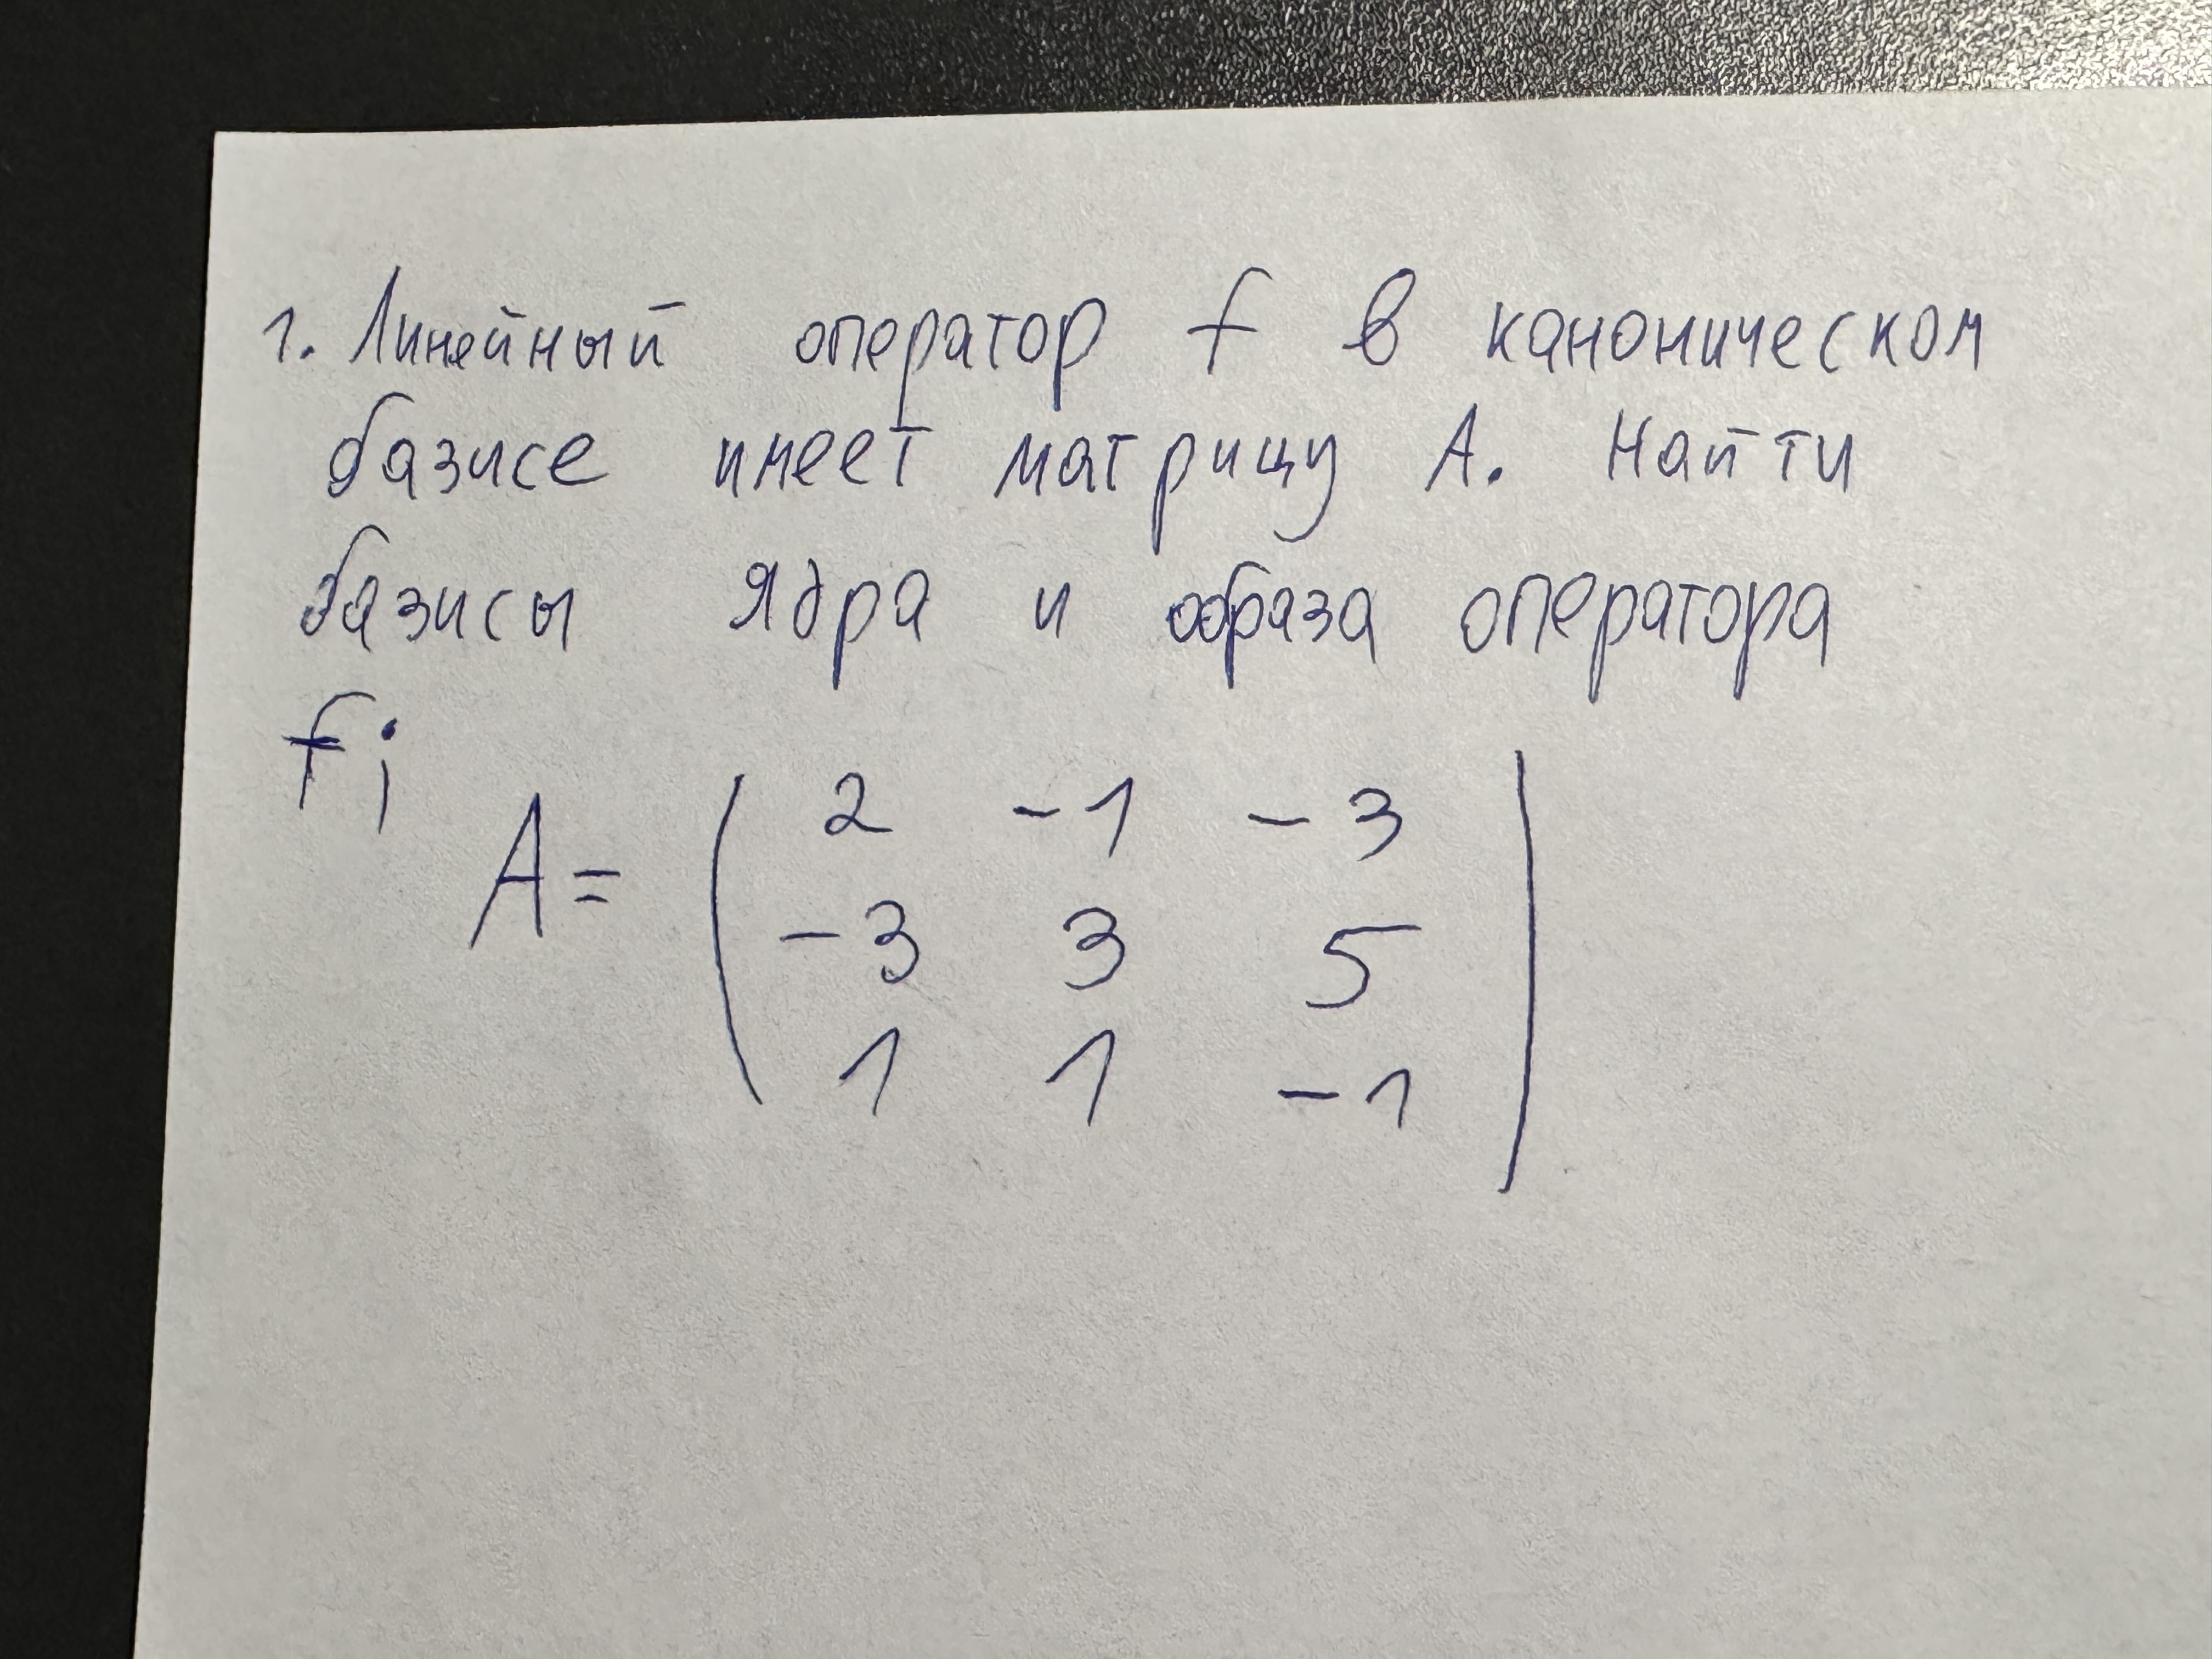 1. Линейный оператор f в каноническом
базисе имеет матрицу A. Найти
базисы ядра и образа оператора
f;
A = ( 2 -1 -3
-3 3 5
1 1 -1 )